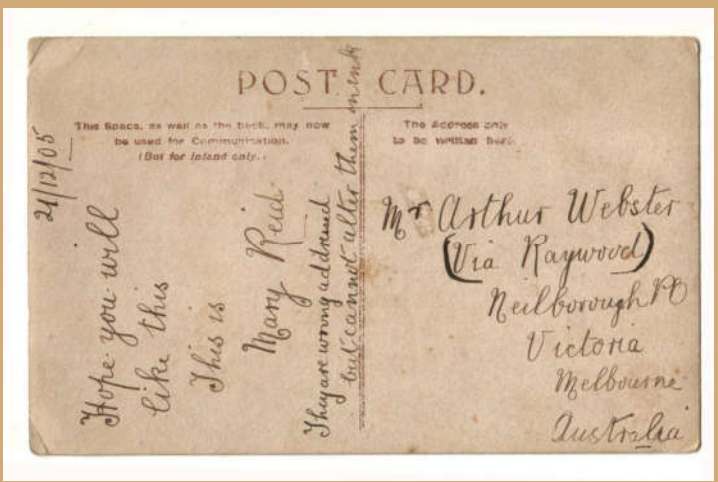 POST CARD.
This Space, as well as the back, may now
be used for Communication.
(But for Inland only.)
The Address only
to be written here.
21/12/05
Hope you will
like this
This is
Mary Reid
They are wrong addressed
but cannot alter them in ink
Mr Arthur Webster
(Via Raywood)
Neilborough PO
Victoria
Melbourne
Australia